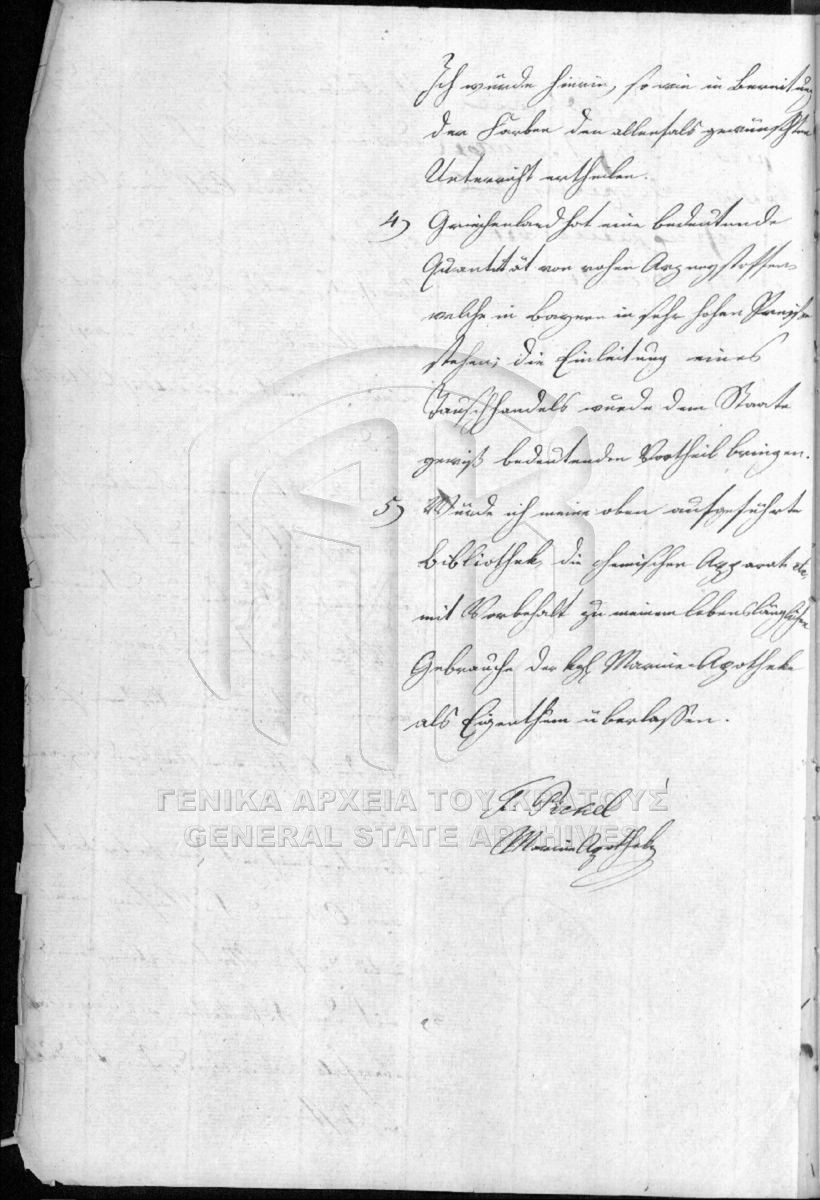 Ich würde hierin, sowie in Bereitung
der Farben den allenfals gewünschten
Unterricht ertheilen.
4) Griechenland hat eine bedeutende
Quantität von rohen Arzneystoffen,
welche in Bayern in sehr hohen Preisen
stehen; die Einleitung eines
Tauschhandels würde dem Staate
gewiß bedeutenden Vortheil bringen.
5) Würde ich meine oben aufgeführte
Bibliothek, die chemischen Apparate etc,
mit Vorbehalt zu meinem lebenslänglichen
Gebrauche der kgl. Marine-Apotheke
als Eigenthum überlassen.
ΓΕΝΙΚΑ ΑΡΧΕΙΑ ΤΟΥ ΚΡΑΤΟΥΣ
GENERAL STATE ARCHIVES
Marine Apotheker